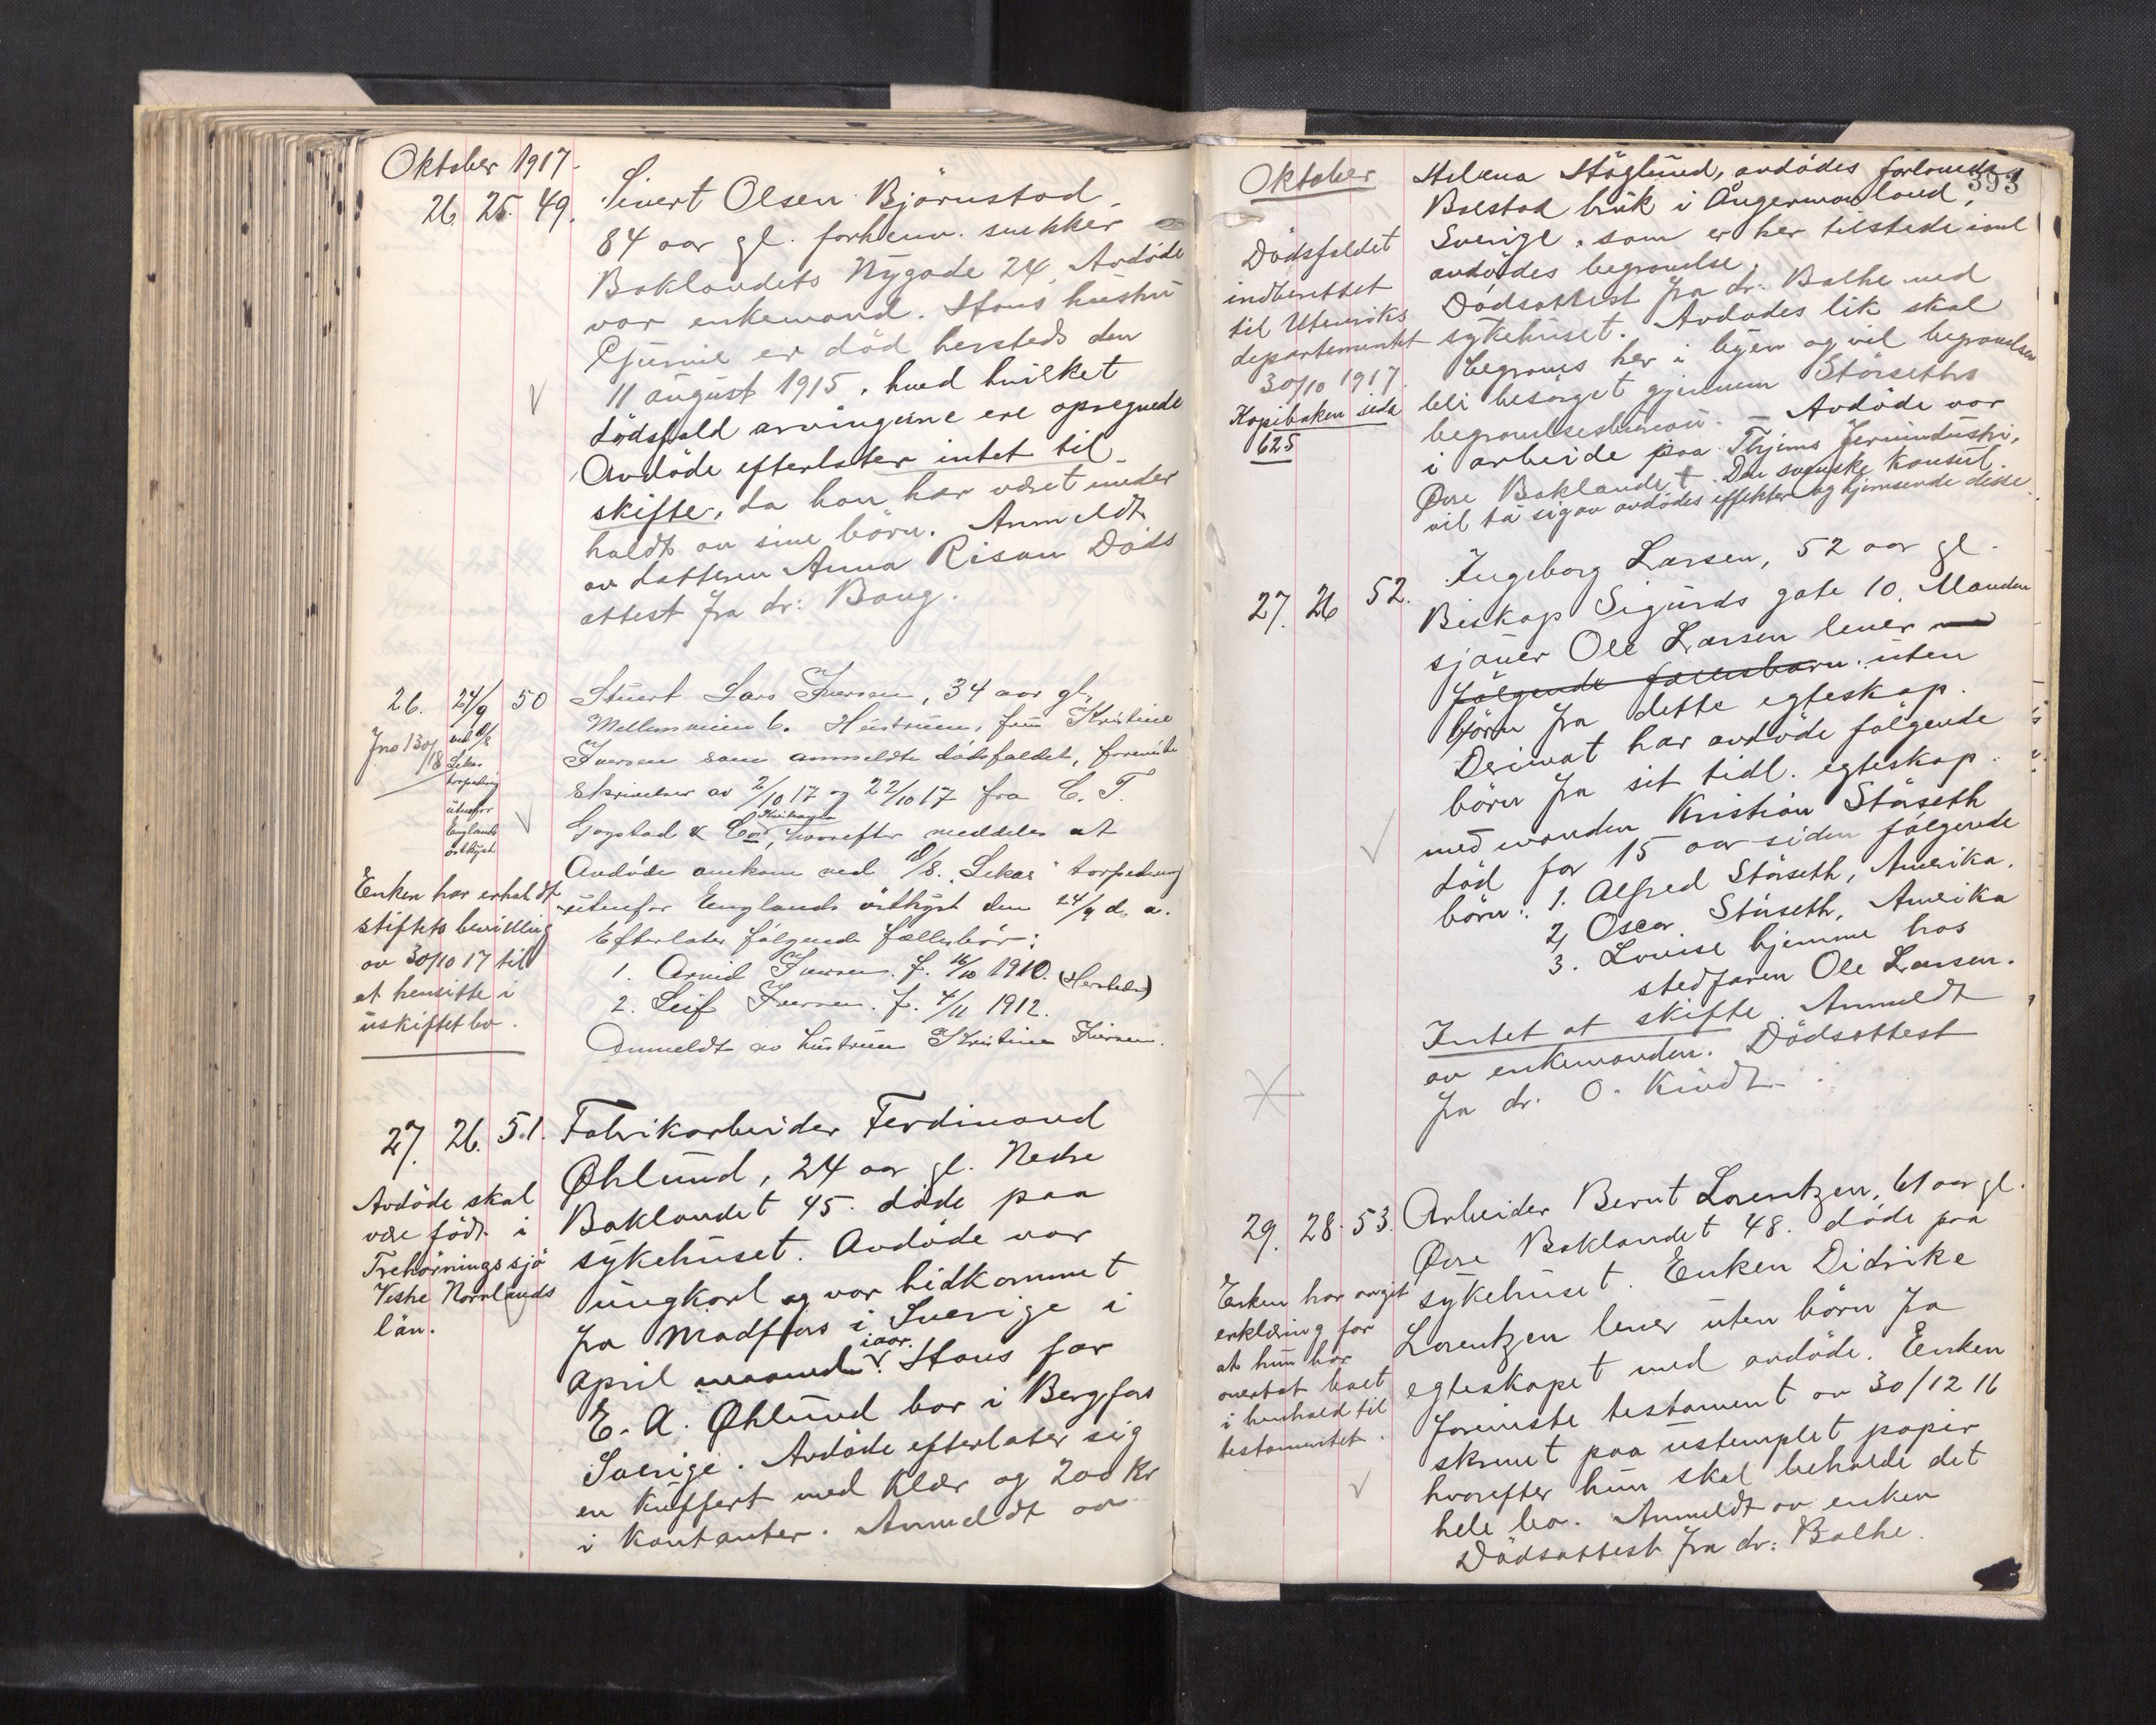 Oktober 1917.
26. 25. 49. Sivert Olsen Björnstad.
84 aar gl. forhenv. snekker
Baklandets Nygade 24. Avdöde
var enkemand. Hans hustru
Gurine er död hersteds den
11 august 1915, hved hvilket
dödsfald arvingerne ere opregnede
Avdöde efterlater intet til
skifte, da han har været under
holdt av sine börn. Anmeldt
av datteren Anna Risan Döds
attest fra dr: Baug.
26. 24/9 50 Stuert Lars Iversen, 34 aar gl.
Mellemveien 6. Hustruen, fru Kristine
Iversen som anmeldte dödsfaldet, foreviste
skrivelser av 2/10 17 og 22/10 17 fra C. T.
Gogstad & Co Kristiania, hvorefter meddeles at
Avdöde omkom ved D/S. "Lekas" torpedering
utenfor Englands östkyst den 24/9 d. a.
Efterlater følgende fællesbör:
1. Arvid Iversen. f. 16/10 1910. (Hersteds)
2. Leif Iversen. f. 4/11 1912.
Anmeldt av hustruen Kristine Iversen.
Jno 130/18
ved D/S
Lekas
torpedering
utenfor
Englands
östkyst
Enken har erholdt
stiftets bevilling
av 30/10 17 til
at hensitte i
uskiftet bo.
27. 26. 51. Fabrikarbeider Ferdinand
Øhlund, 24 aar gl. Nedre
Baklandet 45. döde paa
sykehuset. Avdöde var
ungkarl og var hidkommet
fra Madfors i Sverige i
april maaned iaar. Hans far
E. A. Øhlund bor i Bergfors
Sverige. Avdöde efterlater sig
en kuffert med klær og 200 kr
i kontanter. Anmeldt av
Avdöde skal
være födt i
Trehörningssjö
Vestre Norrlands
län.
393
Oktober
Helena Höglund, avdödes forlovede,
Bolstad bruk i Ångermanland,
Sverige, som er her tilstede imd
avdödes begravelse.
Dödsattest fra dr. Balhe ved
sykehuset. Avdödes lik skal
begraves her i byen og vil begravelsen
bli besörget gjennem Störseths
begravelsesbureau. Avdöde var
i arbeide paa Thjems Jernindustri,
Øvre Baklandet. Den svenske konsul
vil ta sig av avdödes effekter og hjemsende disse.
Dödsfaldet
indberettet
til Utenriks
departementet
30/10 1917.
Kopiboken side
625
27. 26 52. Ingeborg Larsen, 52 aar gl.
Biskop Sigurds gate 10. Manden
sjauer Ole Larsen lever med
følgende fællesbarn. uten
börn fra dette egteskap.
Derimot har avdöde følgende
börn fra sit tidl. egteskap
med manden Kristian Störseth
död for 15 aar siden følgende
börn: 1. Alfred Störseth, Amerika.
2, Oscar Störseth, Amerika
3. Lovise hjemme hos
stedfaren Ole Larsen.
Intet at skifte. Anmeldt
av enkemanden. Dödsattest
fra dr. O. Kindt.
29. 28. 53. Arbeider Bernt Lorentzen, 61 aar gl.
Øvre Baklandet 48. döde paa
sykehuset. Enken Didrike
Lorentzen lever uten börn fra
egteskapet med avdöde. Enken
foreviste testament av 30/12 16
skrevet paa ustemplet papir
hvorefter hun skal beholde det
hele bo. Anmeldt av enken
Dödsattest fra dr: Balhe.
Enken har avgit
erklæring for
at hun har
overtat boet
i henhold til
testamentet.